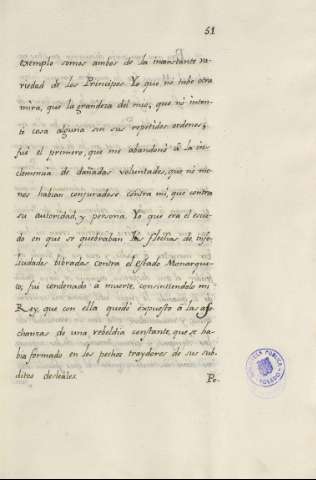 51
exemplo somos ambos de la inconstante va-
riedad de los Principes. Yo que no tube otra
mira, que la grandeza del mio; que no inten-
tó cosa alguna sin sus repetidas ordenes;
fui el primero, que me abandonó á la in-
clemencia de dañadas voluntades, que no me-
nos habian conjuradose contra mi, que contra
su autoridad, y persona. Yo que era el escu-
do en que se quebraban las flechas de infe-
licidades libradas contra el estado Monarqui-
co, fui condenado á muerte, consintiendolo mi
Rey, que con ella quedó expuesto á las ase-
chanzas de una rebeldia constante, que se ha-
bia formado en los pechos traydores de sus sub-
ditos desleales.
Po-